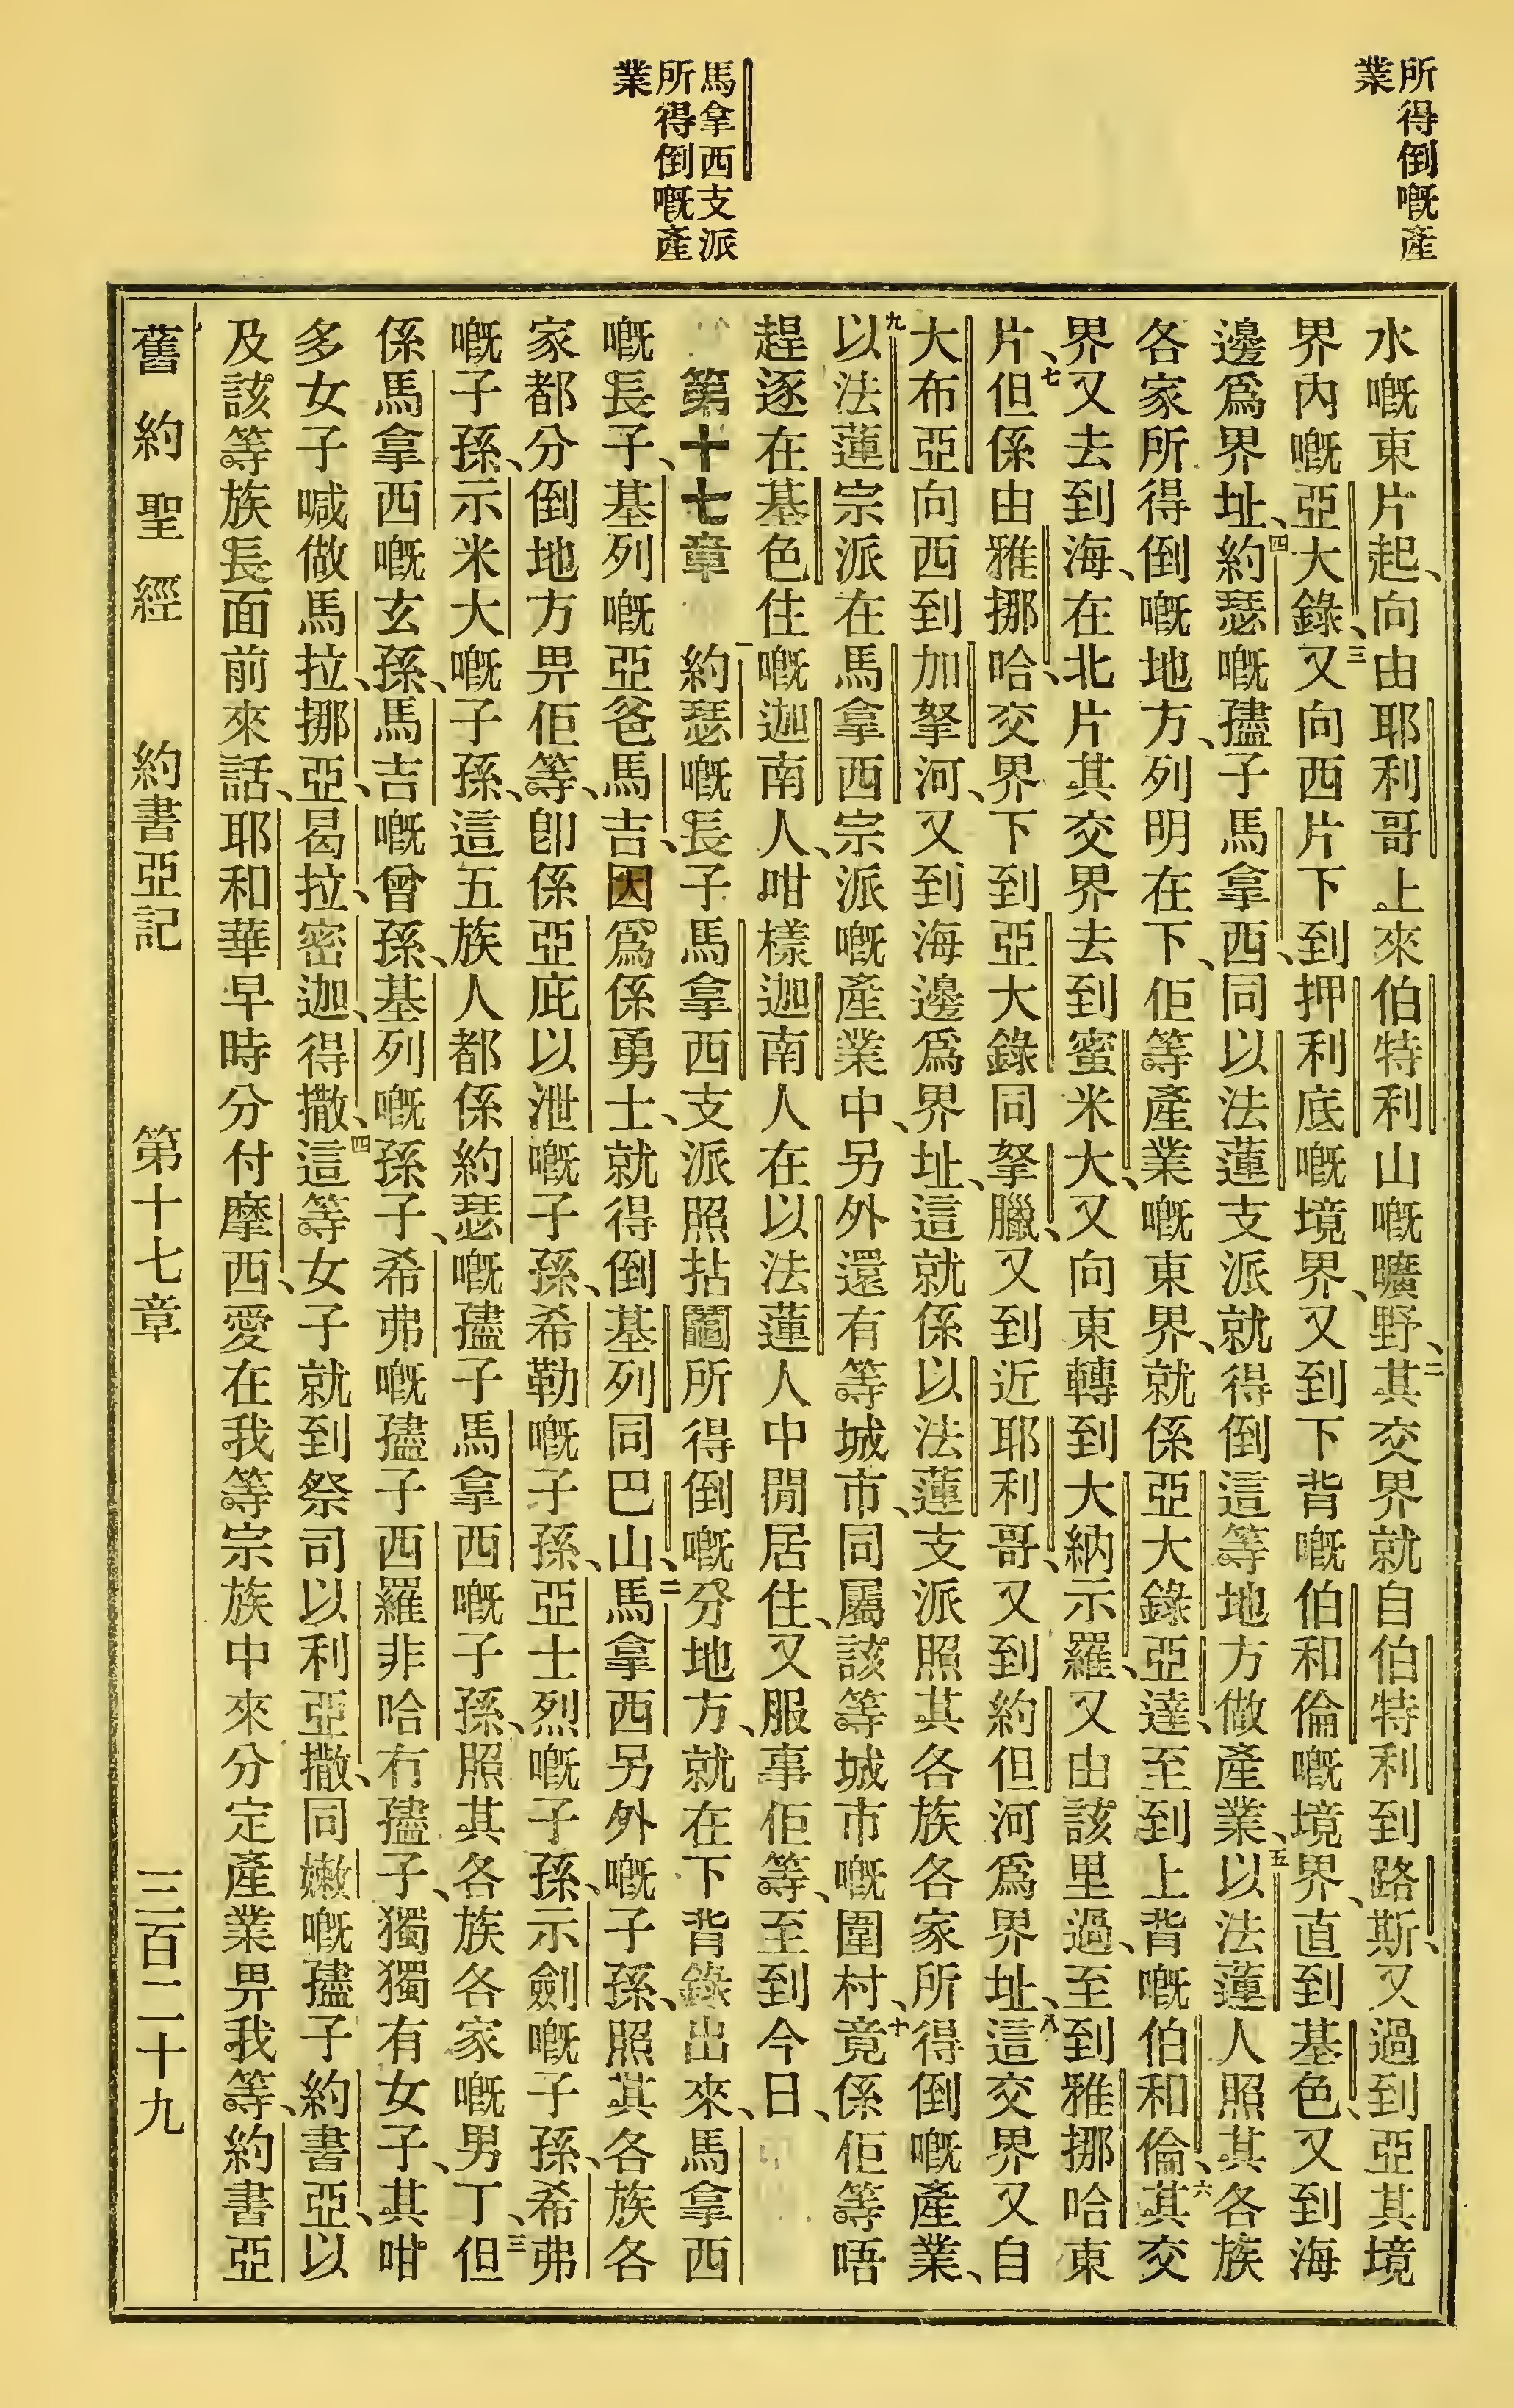 所得倒嘅產
業
馬拿西支派
所得倒嘅產
業
水嘅東片起、向由耶利哥上來伯特利山嘅曠野、二其交界就自伯特利到路斯、又過到亞其境
界內嘅亞大錄、三又向西片下到押利底嘅境界、又到下背嘅伯和倫嘅境界、直到基色、又到海
邊爲界址、四約瑟嘅𡥧子馬拿西、同以法蓮支派就得倒這等地方做產業、五以法蓮人照其各族
各家所得倒嘅地方、列明在下、佢等產業嘅東界、就係亞大錄亞達、至到上背嘅伯和倫、六其交
界又去到海、在北片其交界去到蜜米大、又向東轉到大納示羅、又由該里過、至到雅挪哈東
片、七但係由雅挪哈、交界下到亞大錄同拏臘、又到近耶利哥、又到約但河爲界址、八這交界又自
大布亞向西到加拏河、又到海邊爲界址、這就係以法蓮支派照其各族各家所得倒嘅產業、
九以法蓮宗派在馬拿西宗派嘅產業中、另外還有等城市、同屬該等城市嘅圍村、十竟係佢等唔
趕逐在基色住嘅迦南人、咁樣迦南人在以法蓮人中間居住、又服事佢等、至到今日、
第十七章 一約瑟嘅長子馬拿西支派照拈鬮所得倒嘅分地方、就在下背錄出來、馬拿西
嘅長子、基列嘅亞爸馬吉、因爲係勇士、就得倒基列同巴山、二馬拿西另外嘅子孫、照其各族各
家都分倒地方畀佢等、卽係亞庇以泄嘅子孫、希勒嘅子孫、亞士烈嘅子孫、示劍嘅子孫、希弗
嘅子孫、示米大嘅子孫、這五族人都係約瑟嘅𡥧子馬拿西嘅子孫、照其各族各家嘅男丁、三但
係馬拿西嘅玄孫、馬吉嘅曾孫、基列嘅孫子、希弗嘅𡥧子西羅非哈冇𡥧子、獨獨有女子、其咁
多女子喊做馬拉、挪亞、曷拉、密迦、得撒、四這等女子就到祭司以利亞撒、同嫩嘅𡥧子約書亞、以
及該等族長面前來話、耶和華早時分付摩西、愛在我等宗族中來分定產業畀我等、約書亞
舊約聖經 約書亞記 第十七章 三百二十九